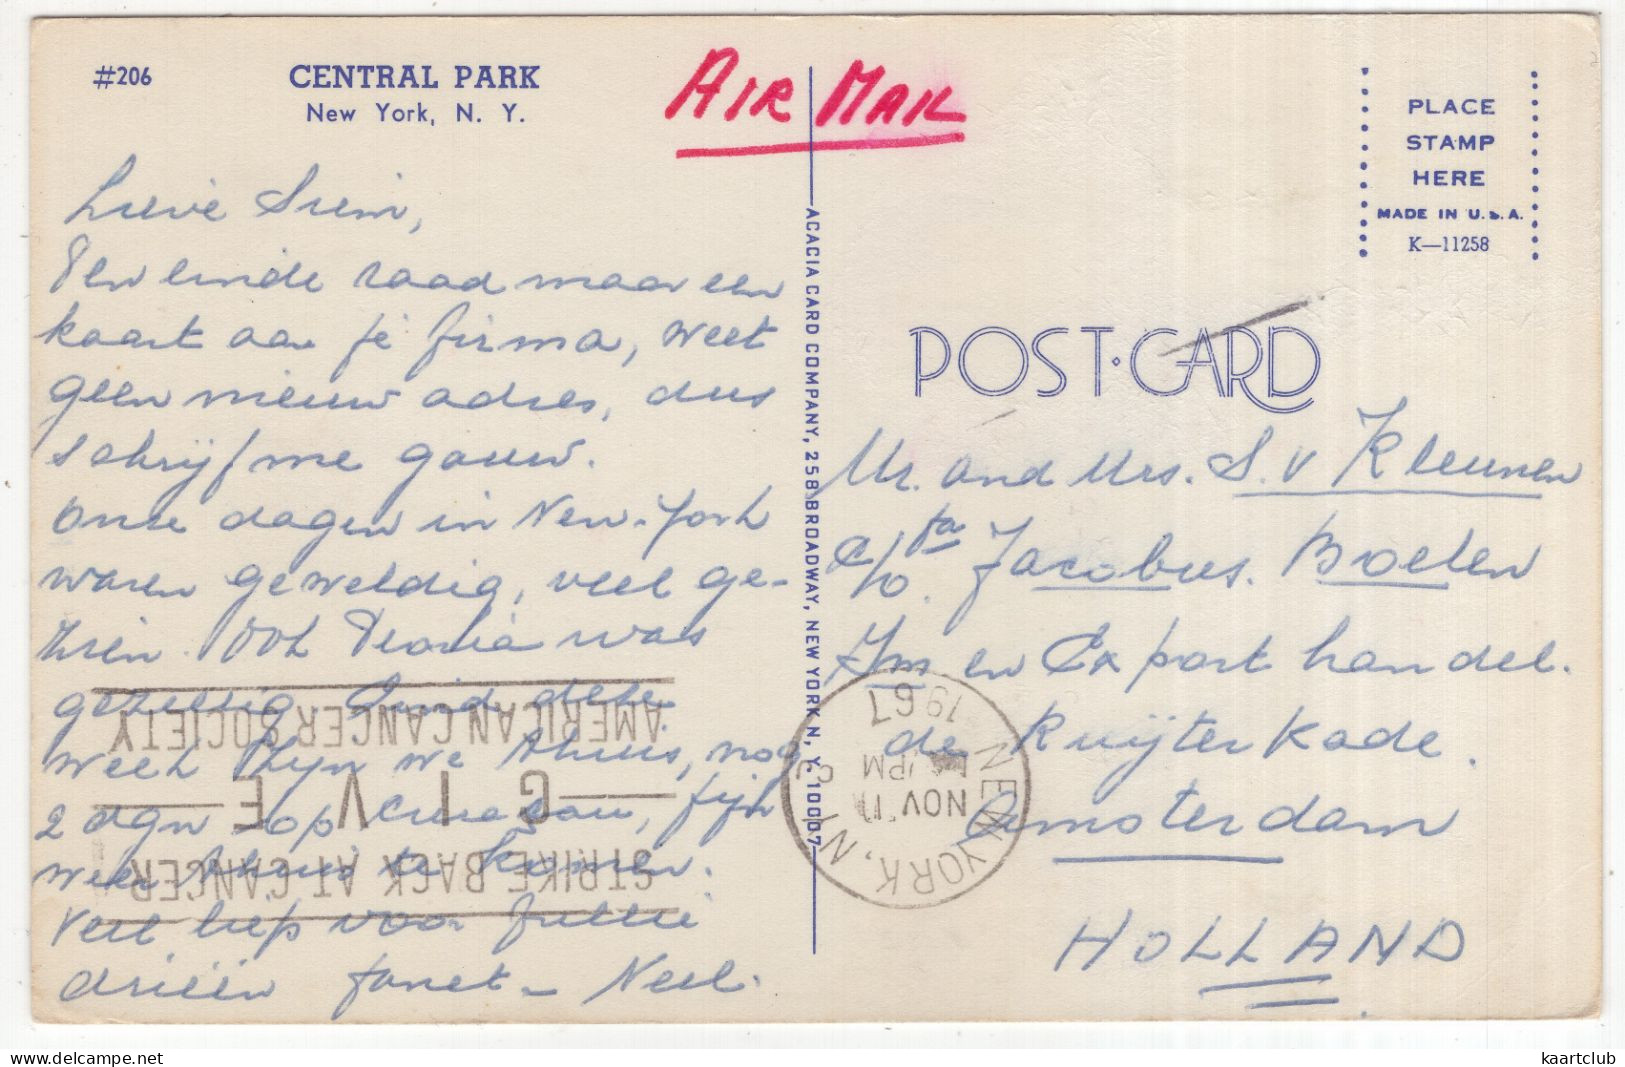 #206
CENTRAL PARK
New York, N. Y.
AIR MAIL
Lieve Siem,
Ten einde raad maar een
kaart aan je firma, weet
geen nieuw adres, dus
schrijf me gauw.
Onze dagen in New-York
waren geweldig, veel ge-
zien. Ook Peoria was
gezellig. Eind deze
week zijn we thuis, nog
2 dgn op Curaçau, fijn
weer thuis te komen.
Veel liefs voor jullie
drieën Janet - Neel.
ACACIA CARD COMPANY, 258 BROADWAY, NEW YORK N. Y. 10007
PLACE
STAMP
HERE
MADE IN U.S.A.
K—11258
POST·CARD
Mr. and Mrs. S. v Kleunen
c/o fa Jacobus. Boelen
Im en Export handel.
de Ruijterkade.
Amsterdam
HOLLAND
NEW YORK, N.Y.
NOV
PM
1967
STRIKE BACK AT CANCER
GIVE
AMERICAN CANCER SOCIETY
kaartclub
www.delcampe.net